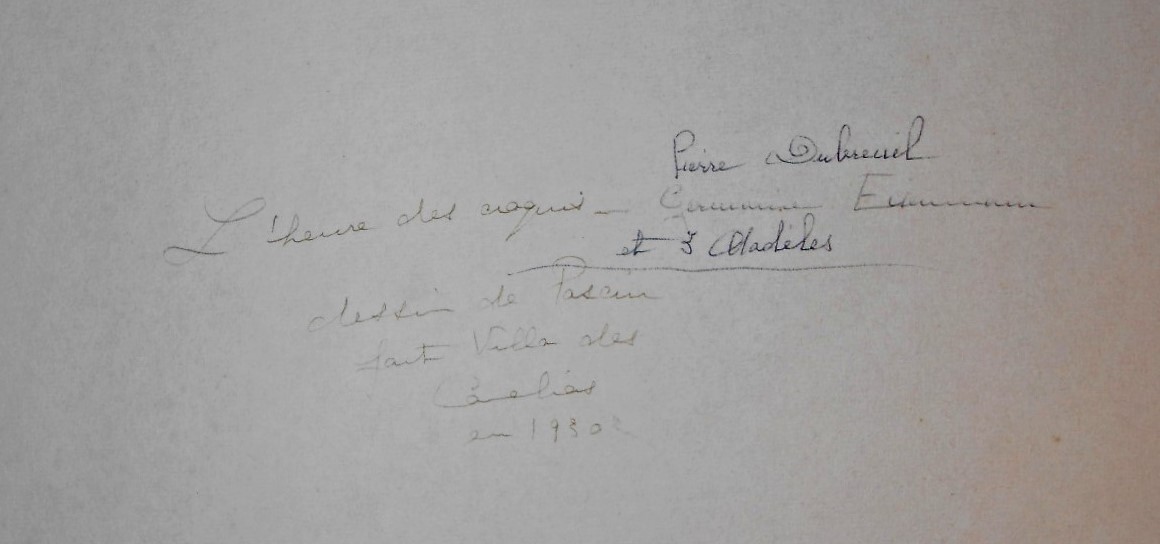 Pierre Dubreuil
L'heure des croquis - Germaine
et 3 Modèles
dessin de Pascin
fait Villa des
Camélias
en 1930